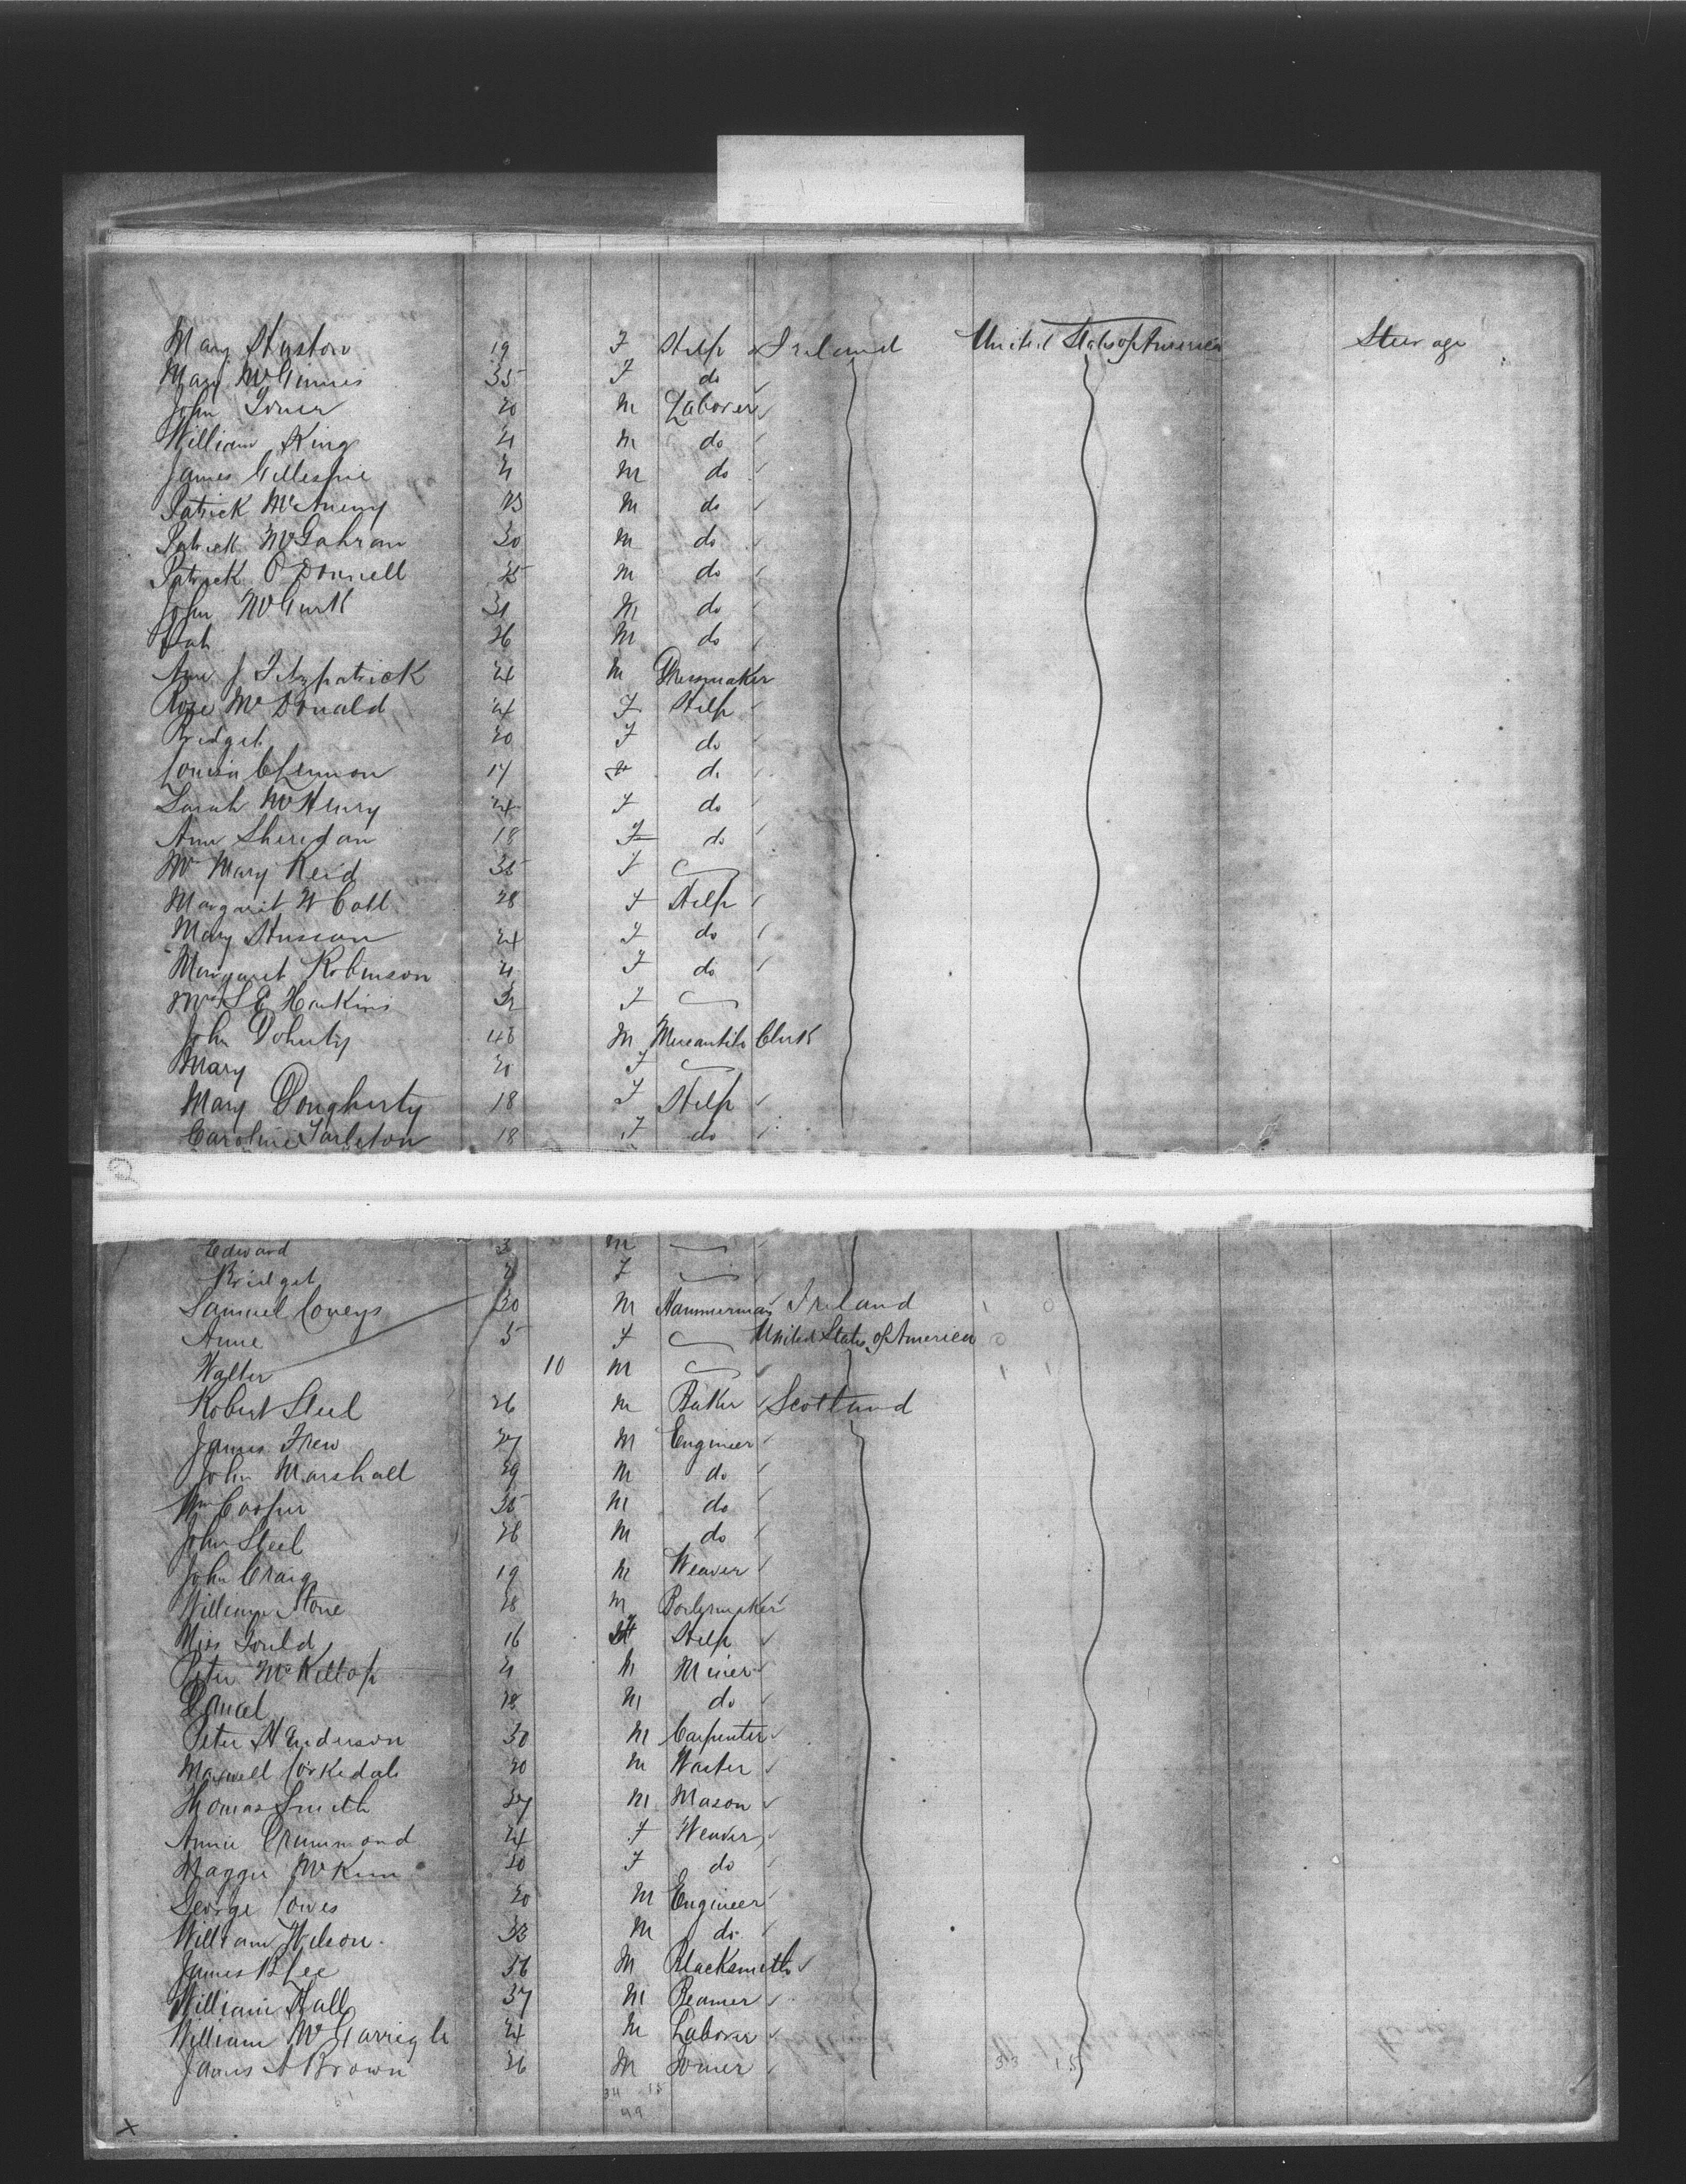 Mary Huston 19 F Help Ireland United States of America Steerage
Mary McGinnis 35 F do
John Toner 20 M Laborer
William King 21 M do
James Gillespie 21 M do
Patrick McAneny 23 M do
Patrick McGahran 30 M do
Patrick O'Donnell 25 M do
John McGurk 31 M do
Pat 26 M do
Ann J Fitzpatrick 24 M Dressmaker
Rose McDonald 24 F Help
Bridget 20 F do
Lennon 17 do
Sarah McHenry 24 F do
Ann Sheridan 18 F do
Mrs Mary Reid 35 F
Margaret W Coll 28 F Help
Mary 24 F do
Margaret Robinson 21 F do
Mrs S E Harkins 32 F
John Doherty 46 M Mercantile Clerk
Mary 20 F
Mary Dougherty 18 F Help
Caroline Tarleton 18 F do
Edward 3 M
Bridget F
Samuel Coneys 30 M Hammerman Ireland
Anne 5 F United States of America
Walter 10 M
Robert Steel 26 M Baker Scotland
James Frew 27 M Engineer
John Marshall 29 M do
Wm Cooper 35 M do
John Steel 26 M do
John Craig 19 M Weaver
William Stone 28 M
Miss Gould 16 F Help
Peter McKillop 21 M Miner
Daniel 18 M do
Peter Henderson 30 M Carpenter
Maxwell Corkedale 20 M Waiter
Thomas Smith 27 M Mason
Annie Drummond 24 F Weaver
Maggie McKim 20 F do
George Cowes 20 M Engineer
William Wilson 32 M do
James B Lee 36 M Blacksmith
William Hall 37 M Beamer
William McGarrigle 24 M Laborer
James A Brown 26 M Joiner